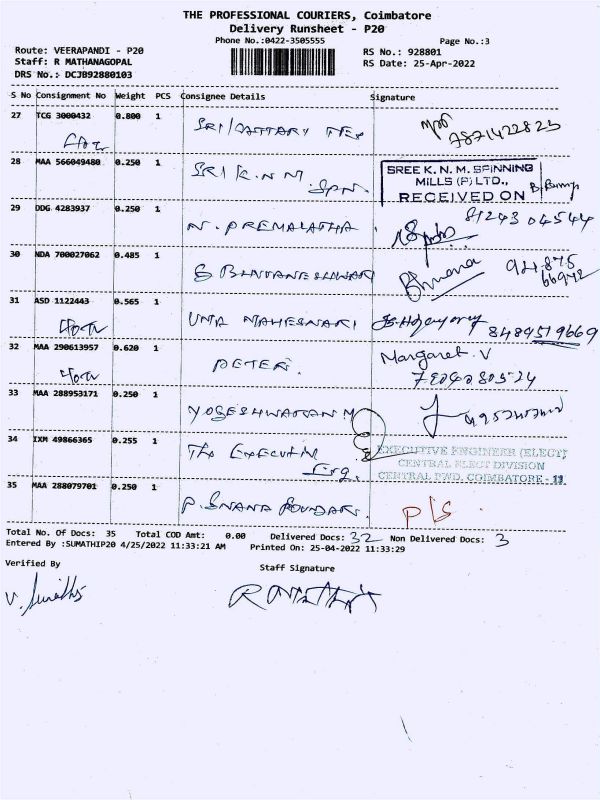 THE PROFESSIONAL COURIERS, Coimbatore
Delivery Runsheet - P20
Phone No.:0422-3505555
Page No.:3
Route: VEERAPANDI - P20
RS No.: 928801
Staff: R MATHANAGOPAL
RS Date: 25-Apr-2022
DRS No.: DCJB92880103
S No Consignment No Weight PCS Consignee Details Signature
27 TCG 3000432 0.800 1 7871422823
28 MAA 566049480 0.250 1 SRI K.N M SPN.
SREE K. N. M. SPINNING
MILLS (P) LTD.,
RECEIVED ON
29 DDG 4283937 0.250 1 N. PREMALATHA 81243 04544
30 NDA 700027062 0.485 1 Bhuvana
31 ASD 1122443 0.565 1 UMA MAHESWARI 8489519669
32 MAA 290613957 0.620 1 PETER. Margaret. V
33 MAA 288953171 0.250 1 YOGESHWARAN M
34 IXM 49866365 0.255 1 The Executive Eng.
EXECUTIVE ENGINEER (ELECT)
CENTRAL ELECT DIVISION
CENTRAL PWD, COIMBATORE - 11
35 MAA 288079701 0.250 1 P/S
Total No. Of Docs: 35 Total COD Amt: 0.00 Delivered Docs: 32 Non Delivered Docs: 3
Entered By :SUMATHIP20 4/25/2022 11:33:21 AM Printed On: 25-04-2022 11:33:29
Verified By
Staff Signature